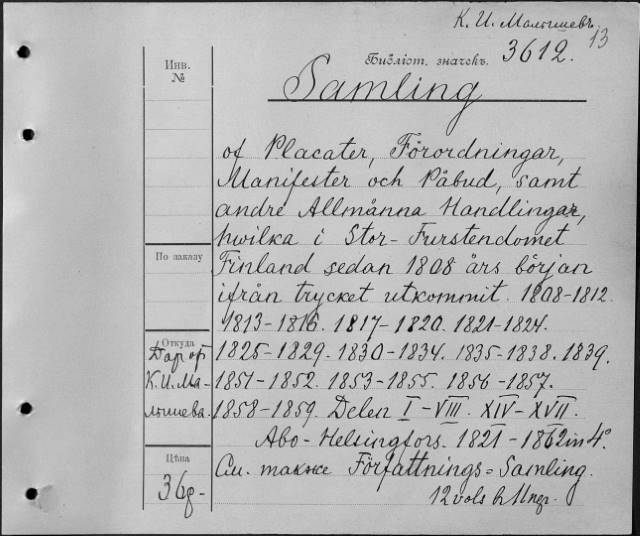 К. И. Малышевъ.
13
Инв.
№
Библіот. значекъ. 3612.
Samling
of Placater, Förordningar,
Manifester och Påbud, samt
andre Allmånna Handlingar,
hwilka i Stor-Furstendomet
По заказу
Finland sedan 1808 års början
ifrån trycket utkommit. 1808-1812.
1813-1816. 1817-1820. 1821-1824.
Откуда
Дар от
К. И. Ма-
лышева.
1825-1829. 1830-1834. 1835-1838. 1839.
1851-1852. 1853-1855. 1856-1857.
1858-1859. Delen I-VIII. XIV-XVII.
Abo-Helsingfors. 1821-1862 in 4°.
Цѣна
36р-
См. также Författnings=Samling.
12 vols